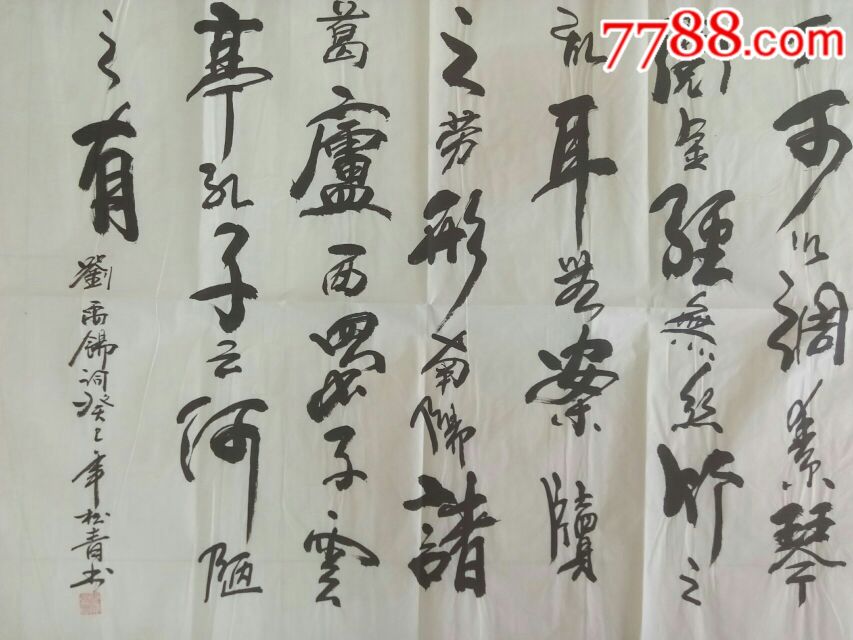 7788.com
丁可以調素琴
閱金經無絲竹之
乱耳無案牘
之劳形南陽諸
葛廬西蜀子雲
亭孔子云何陋
之有
劉禹錫詞癸巳年松青书